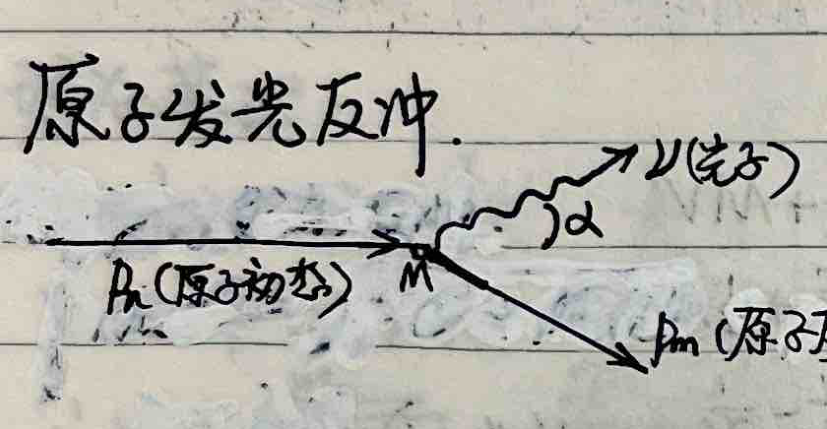 原子发光反冲.
ν(光子)
α
Pn(原子初态)
M
Pm(原子